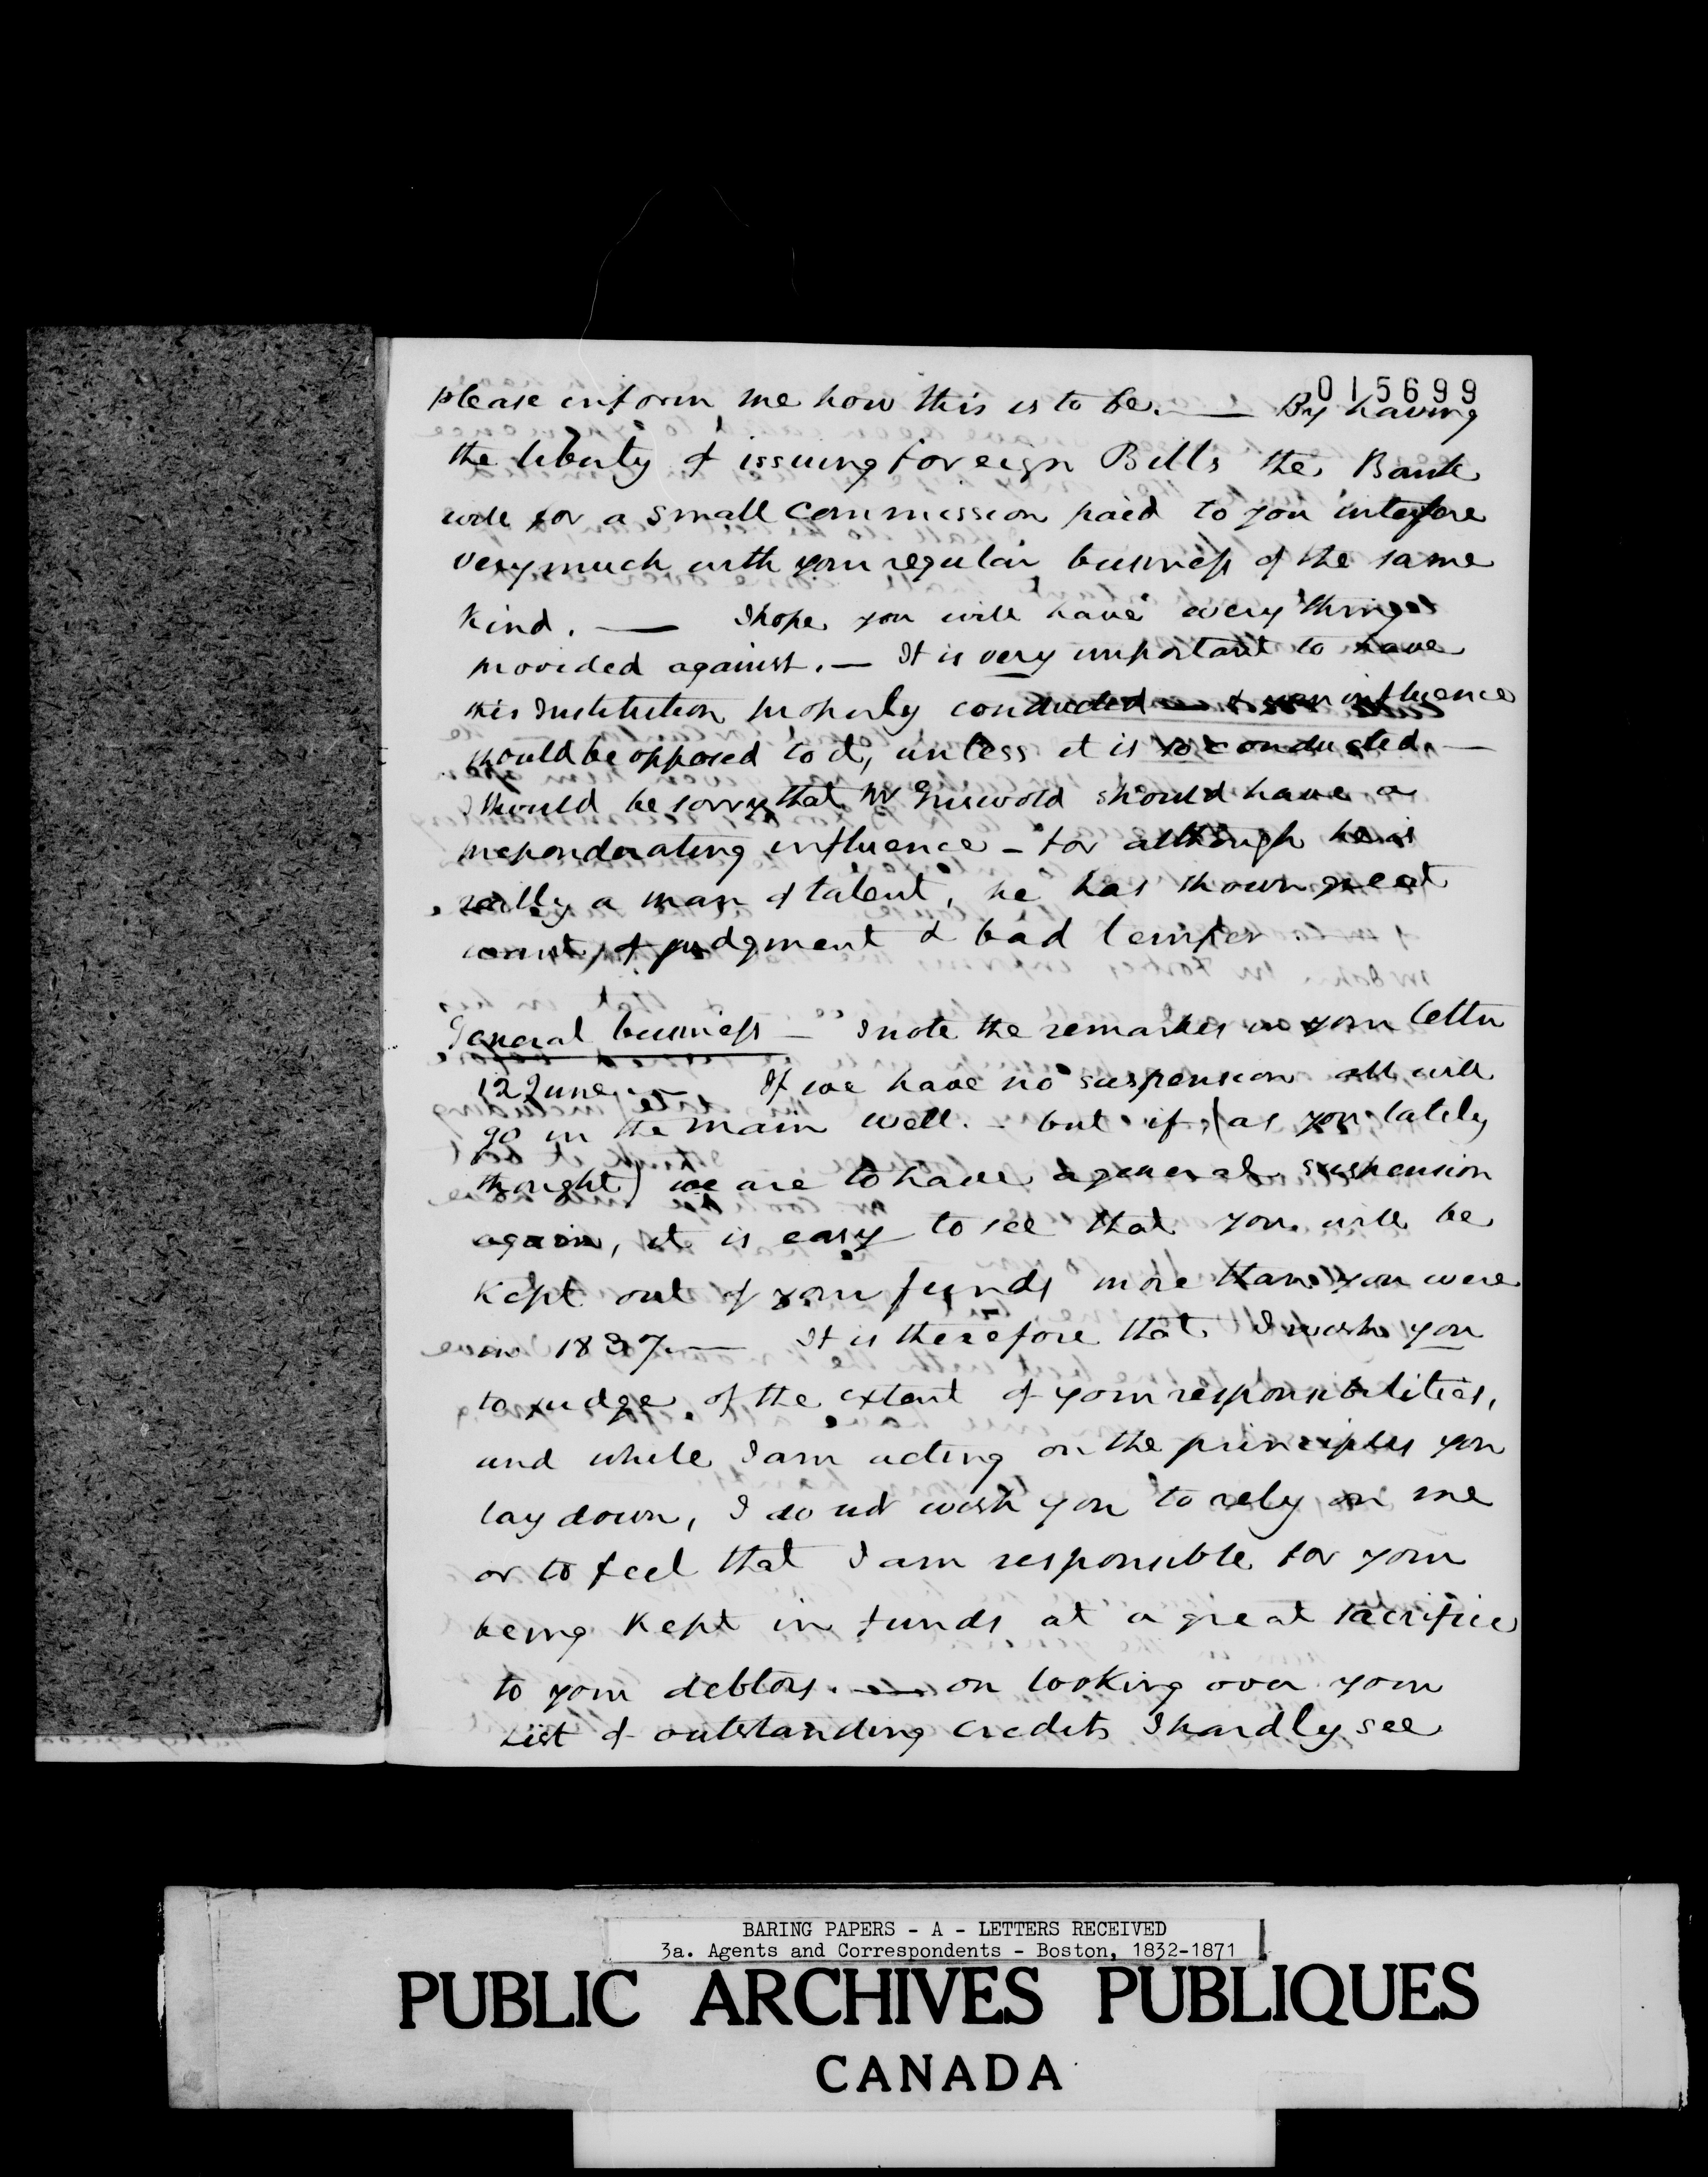 015699
please inform me how this is to be. — By having
the liberty of issuing foreign Bills the Bank
will for a small commission paid to you interfere
very much with your regular business of the same
kind. — I hope you will have every thing
provided against. — It is very important to have
this Institution properly conducted — & your influence
should be opposed to it, unless it is so conducted. —
I should be sorry that Mr Griswold should have a
preponderating influence - for although he is
really a man of talent, he has shown great
want of judgment & bad temper.
General business — I note the remarks in your letter
12 June. — If we have no suspension all will
go in the main well. - but if, (as you lately
thought) we are to have a general suspension
again, it is easy to see that you will be
kept out of your funds more than you were
in 1837. — It is therefore that I wish you
to judge of the extent of your responsibilities,
and while I am acting on the principles you
lay down, I do not wish you to rely on me
or to feel that I am responsible for your
being kept in funds at a great sacrifice
to your debtors. — on looking over your
List of outstanding credits I hardly see
BARING PAPERS - A - LETTERS RECEIVED
3a. Agents and Correspondents - Boston, 1832-1871
PUBLIC ARCHIVES PUBLIQUES
CANADA